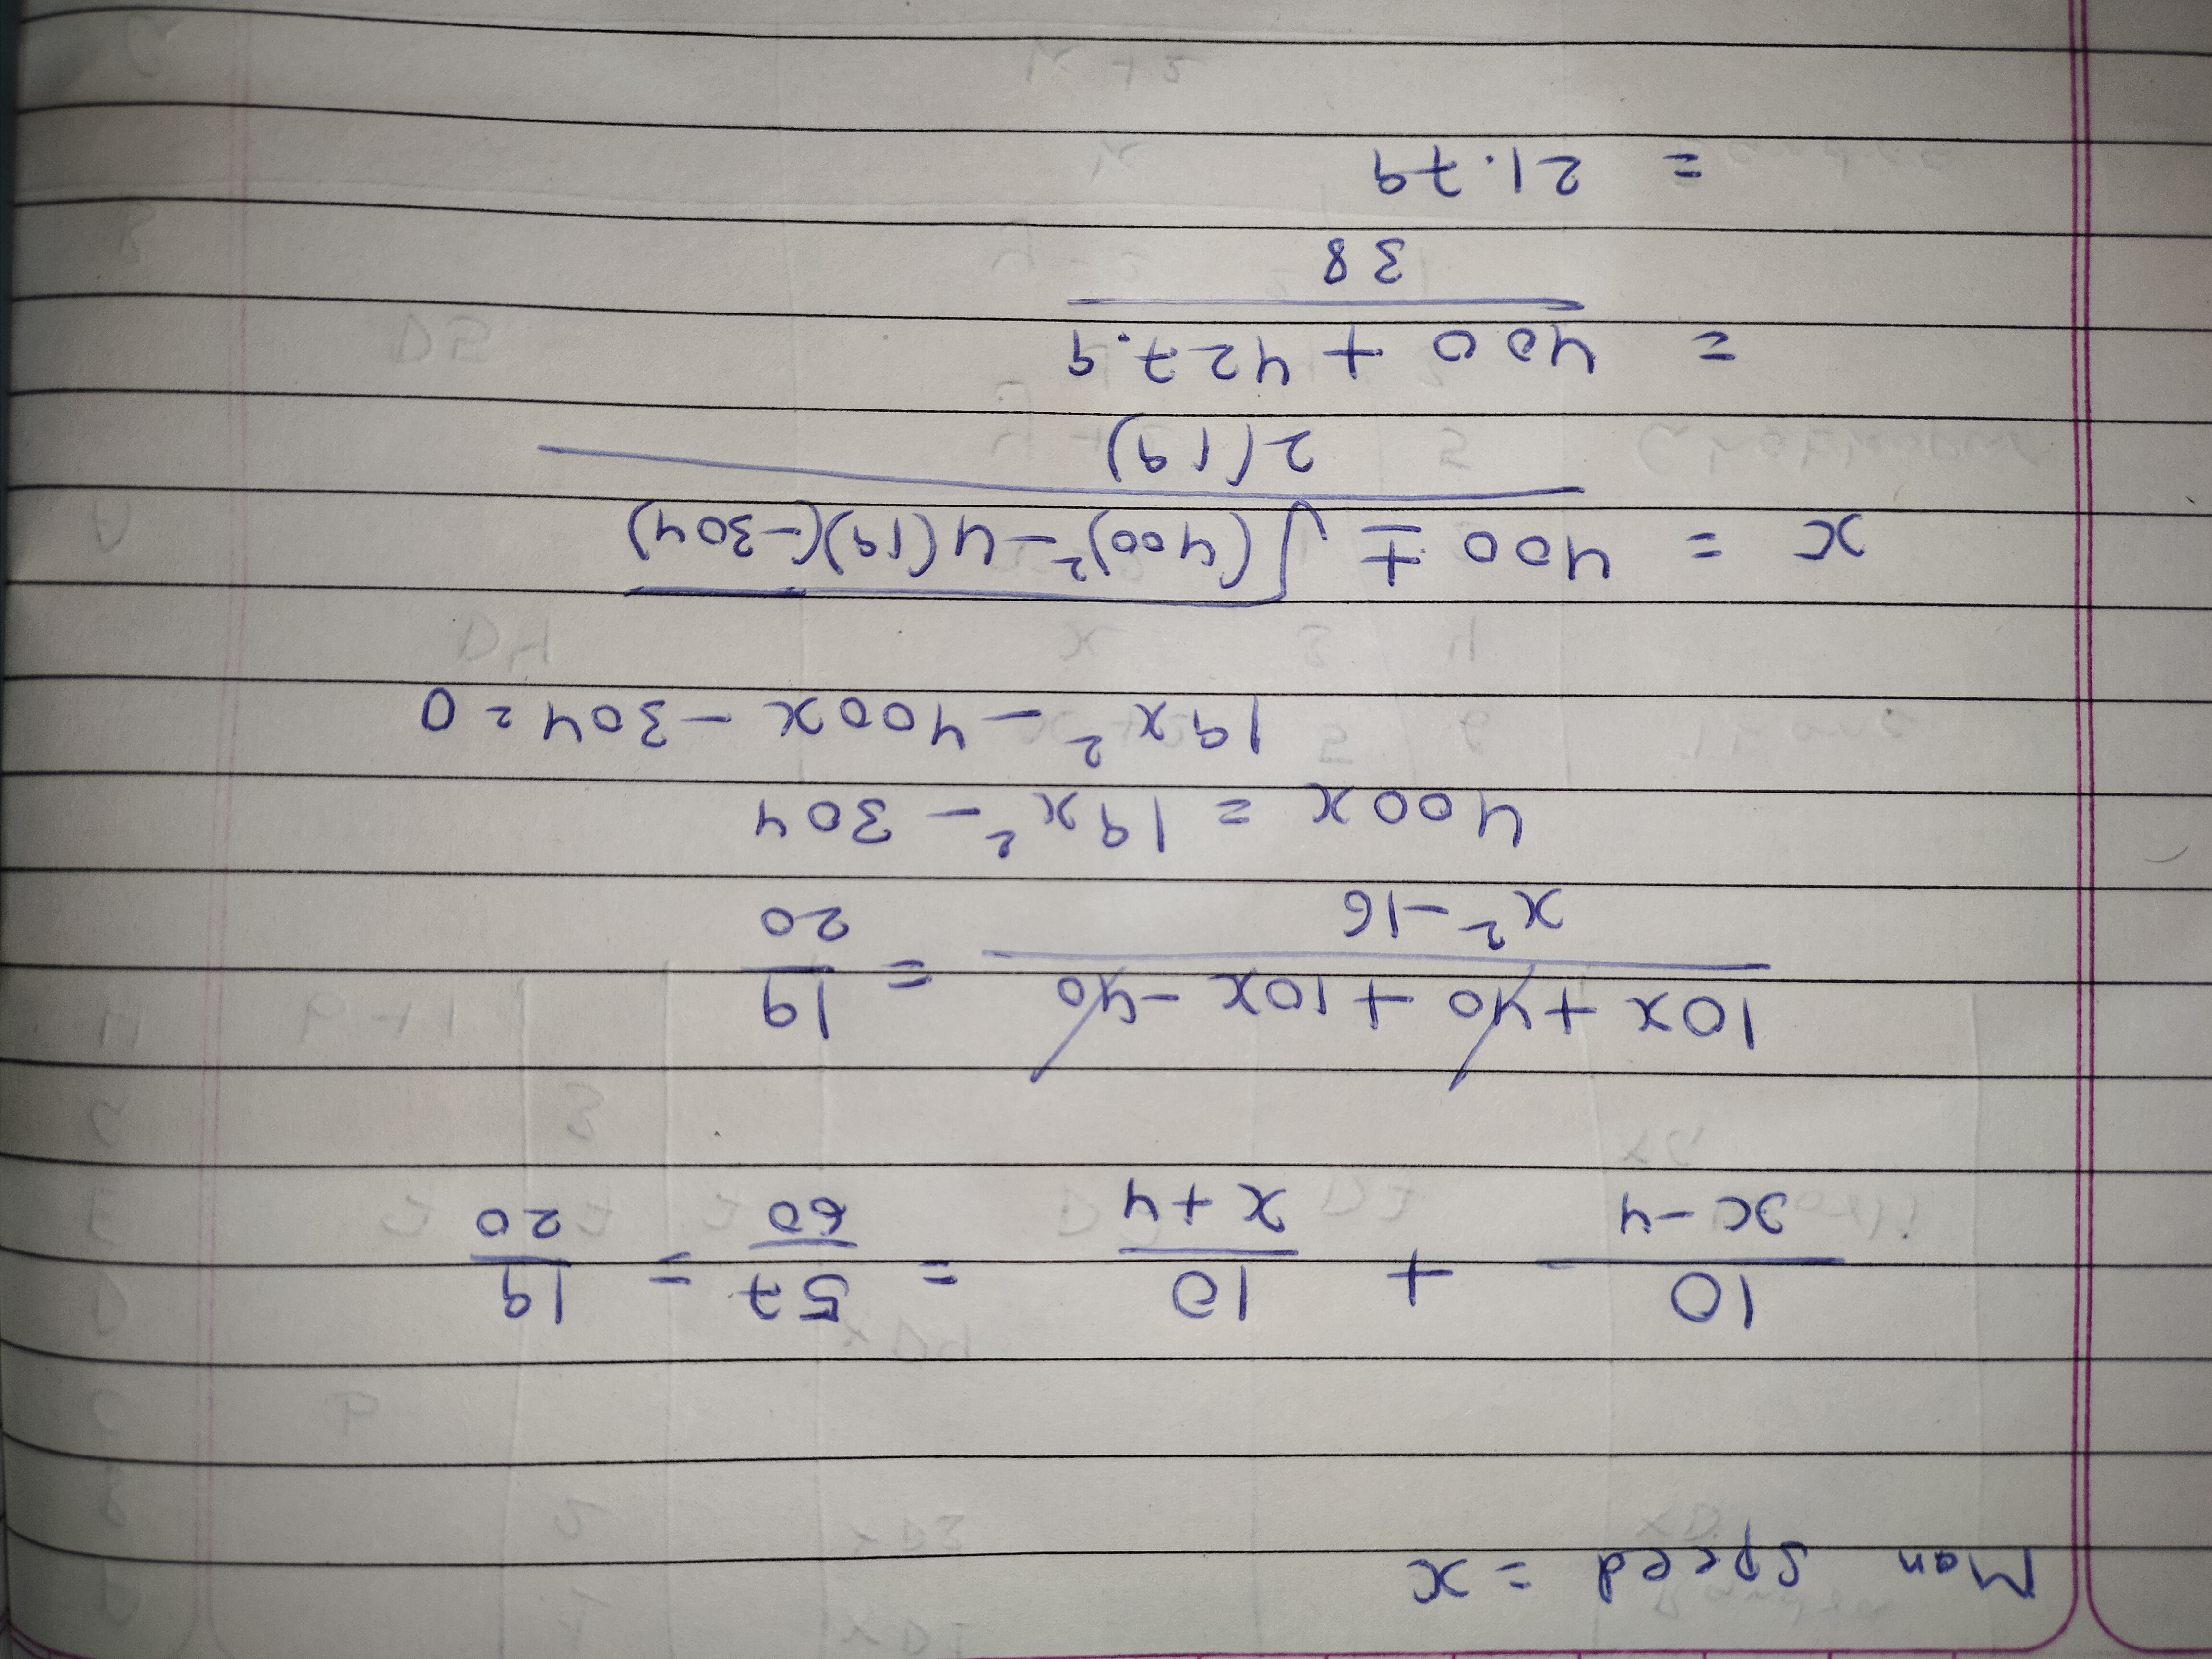 Man speed = x
10/(x-4) + 10/(x+4) = 57/60 = 19/20
(10x + 40 + 10x - 40)/(x² - 16) = 19/20
400x = 19x² - 304
19x² - 400x - 304 = 0
x = (400 ± √((400)² - 4(19)(-304)))/(2(19))
= (400 + 427.9)/38
= 21.79